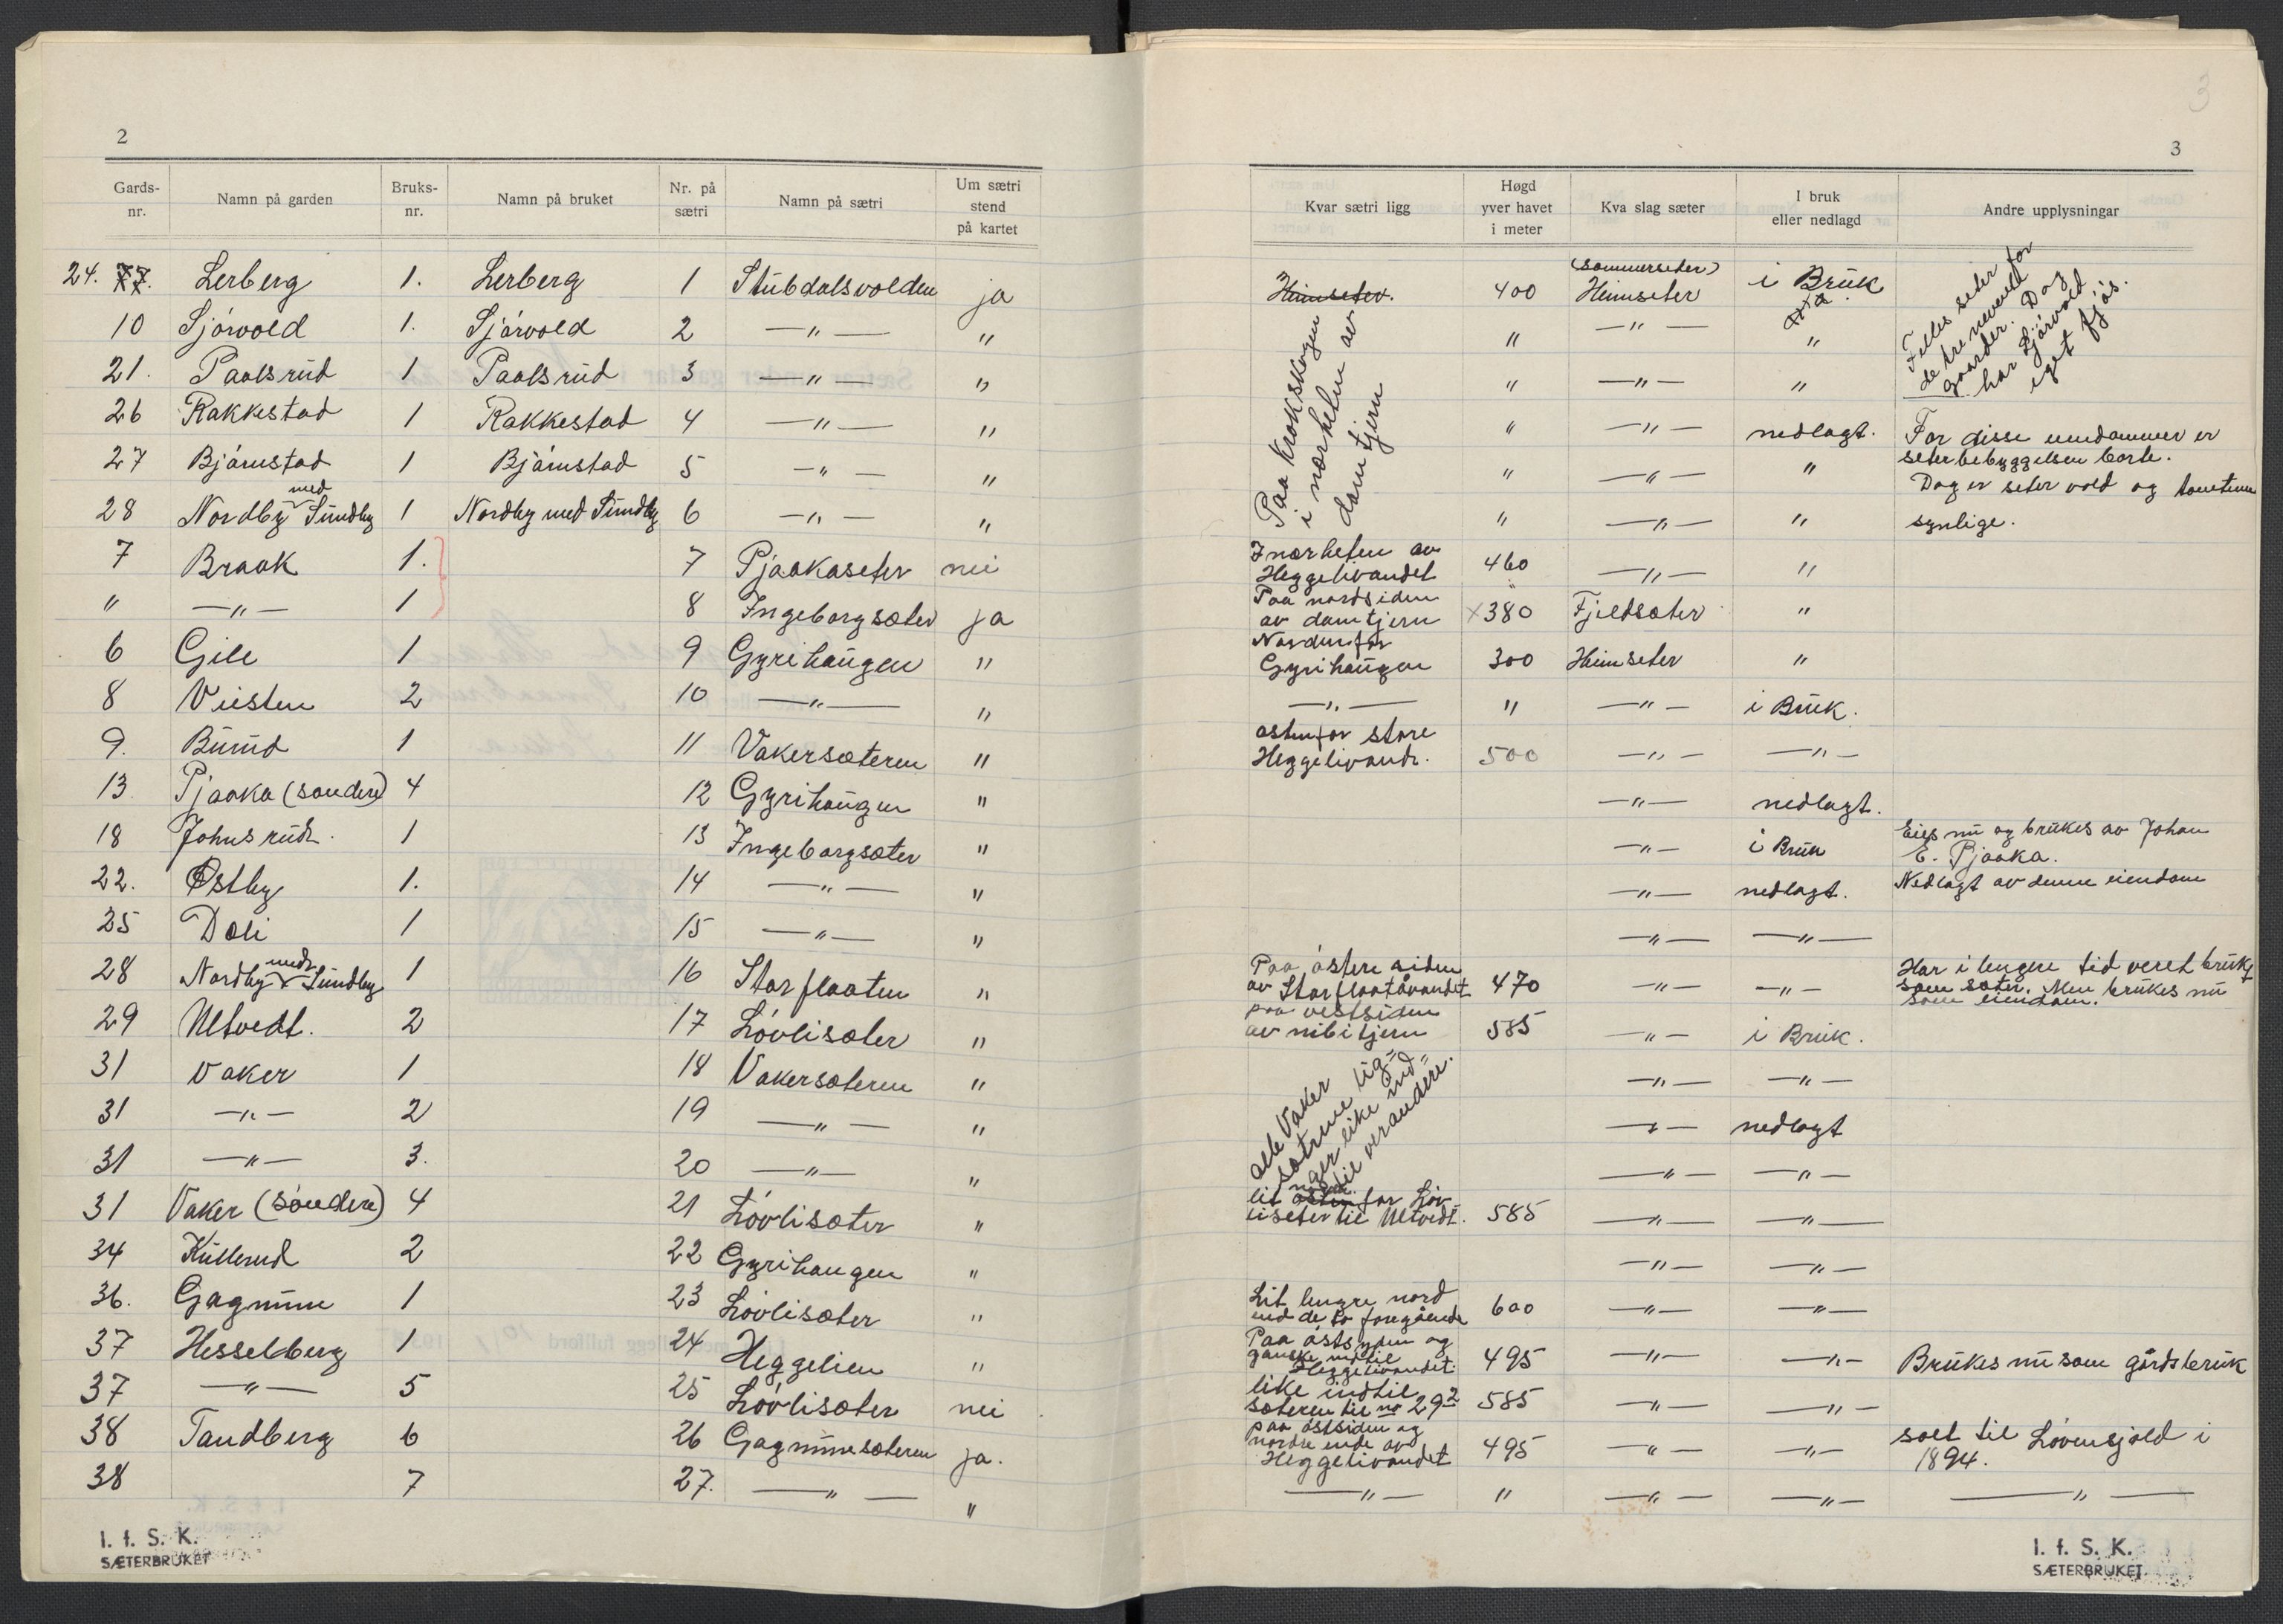 2
Gards-nr. Namn på garden Bruks-nr. Namn på bruket Nr. på sætri Namn på sætri Um sætri stend på kartet
24. 77. Lerberg 1. Lerberg 1 Stubdalsvolden ja
10 Sjørvold 1. Sjørvold 2 —"— "
21. Paalsrud 1 Paalsrud 3 —"— "
26 Rakkestad 1 Rakkestad 4 —"— "
27 Bjørnstad 1 Bjørnstad 5 —"— "
28 Nordby med Sundby 1 Nordby med Sundby 6 —"— "
7 Braak 1. 7 Pjaakaseter nei
" —"— 1 8 Ingeborgsæter ja
6 Gile 1 9 Gyrihaugen "
8 Viesten 2 10 —"— "
9. Burud 1 11 Vakersæteren "
13. Pjaaka (søndere) 4 12 Gyrihaugen "
18 Johnsrud. 1 13 Ingeborgsæter "
22. Østby 1. 14 —"— "
25 Dæli 1 15 —"— "
28 Nordby med Sundby 1 16 Storflaaten "
29 Ultvedt. 2 17 Løvlisæter "
31 Vaker 1 18 Vakersæteren "
31 —"— 2 19 —"— "
31 —"— 3. 20 —"— "
31 Vaker (søndere) 4 21 Løvlisæter "
34 Kullerud 2 22 Gyrihaugen "
36. Gagnum 1 23 Løvlisæter "
37 Hesselberg 1 24 Heggelien "
37 —"— 5 25 Løvlisæter nei
38 Tandberg 6 26 Gagnumsæteren ja.
38 7 27. —"— "
I. f. S. K.
SÆTERBRUKET
3
3
Kvar sætri ligg Høgd yver havet i meter Kva slag sæter I bruk eller nedlagd Andre upplysningar
Heimseter. 400 (sommerseter) Heimseter i Bruk
Paa Krokskogen
i nærheten av
damtjern
" —"— "
" —"— "
Felles seter for
de tre nevnte
gaarder. Dog
har Sjørvold
eget fjøs.
" —"— nedlagt. For disse eiendommer er
seterbebyggelsen borte.
" —"— "
Dog er seter vold og tomtene
" —"— " synlige.
I nærheten av
Heggelivandet 460 —"— "
Paa nordsiden
av damtjern x380 Fjeldsæter "
Nordenfor
Gyrihaugen 300 Heimseter "
—"— " —"— i Bruk.
østenfor store
Heggelivandt. 500 —"— —"—
—"— nedlagt.
—"— i Bruk Eies nu og brukes av Johan
E. Pjaaka.
—"— nedlagt. Nedlagt av denne eiendom
—"— —"—
Paa østere siden
av Storflaatåvandet 470 —"— —"— Har i lengre tid veret brukt
som sæter. Men brukes nu
som eiendom.
paa vestsiden
av nibitjern 585 —"— i Bruk.
alle Vaker
sætrene lig=
nger like ind=
til verandere.
—"— —"—
—"— nedlagt
—"— —"—
lit østen for Løv-
liseter til Ultvedt. 585 —"— —"—
—"— —"—
Lit lengre nord
end de to foregående 600 —"— —"—
Paa østsyden og
ganske nærtil
Heggelivandet. 495 —"— —"— Brukes nu som gårdsbruk
like indtil
sæteren til no 29² 585 —"— —"—
paa østsiden og
nordre ende av
Heggelivandet 495 —"— —"— solt til Løvensjold i
1894.
—"— " —"— —"— —"—
I. f. S. K.
SÆTERBRUKET